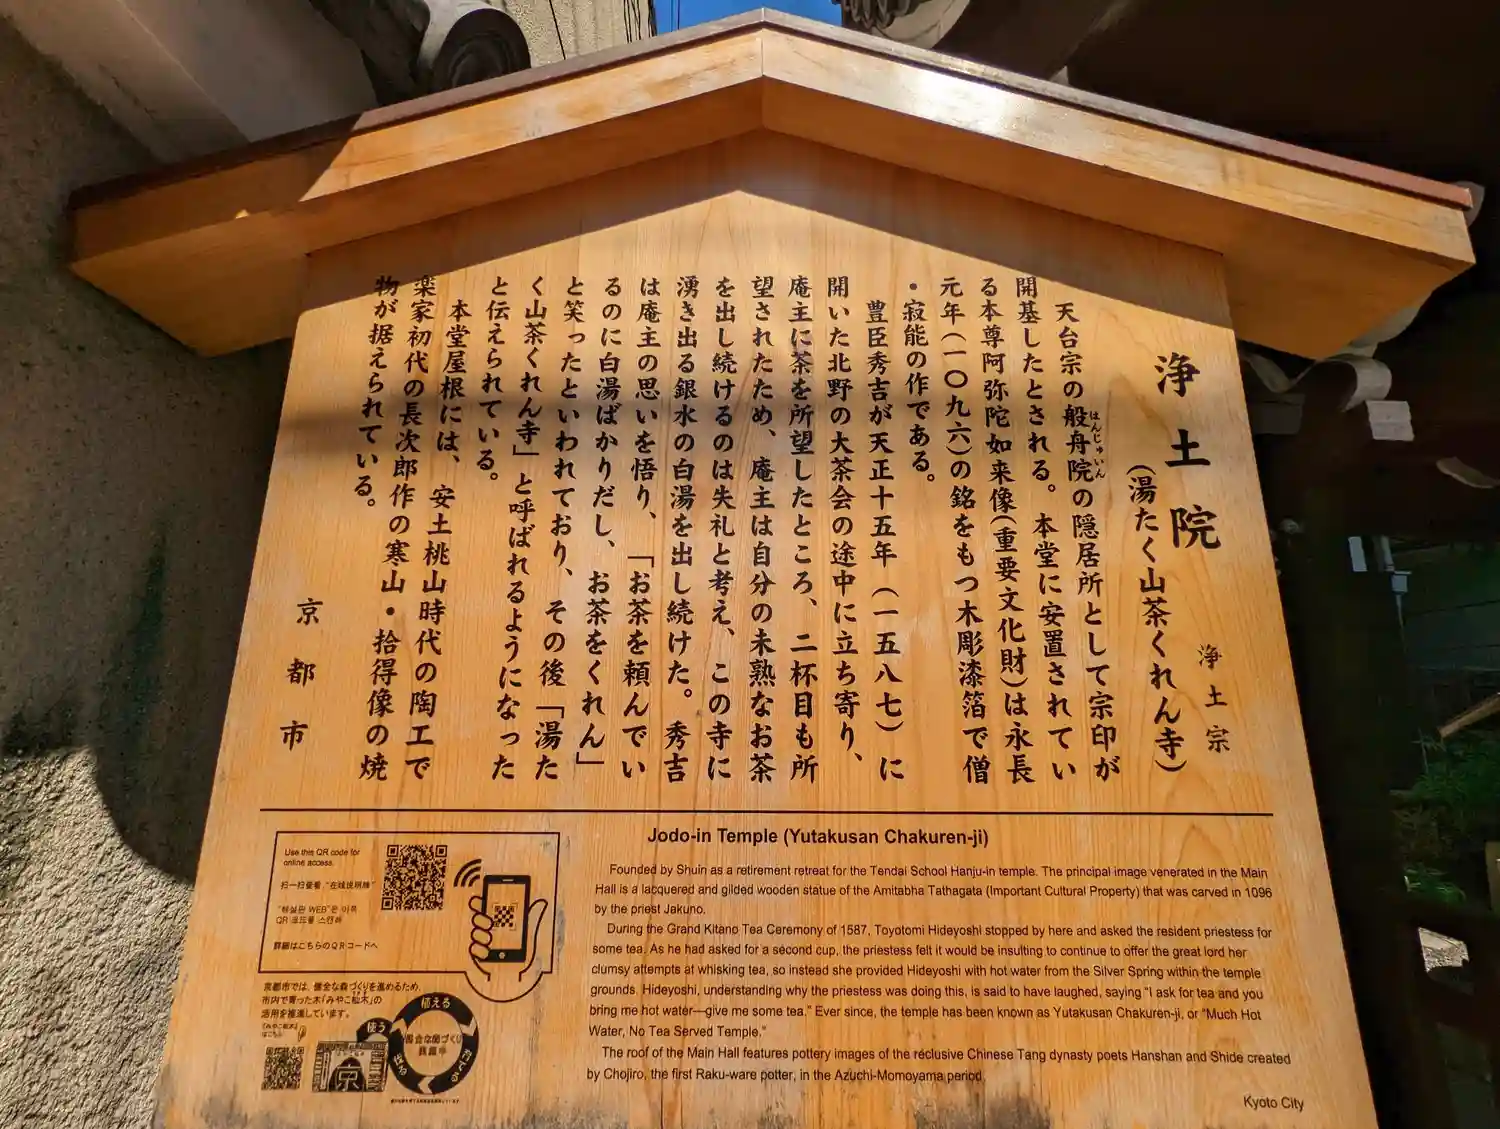 浄土院
浄土宗
(湯たく山茶くれん寺)
天台宗の般舟院の隠居所として宗印が
はんじゅいん
開基したとされる。本堂に安置されてい
る本尊阿弥陀如来像(重要文化財)は永長
元年(一〇九六)の銘をもつ木彫漆箔で僧
・寂能の作である。
豊臣秀吉が天正十五年(一五八七)に
開いた北野の大茶会の途中に立ち寄り、
庵主に茶を所望したところ、二杯目も所
望されたため、庵主は自分の未熟なお茶
を出し続けるのは失礼と考え、この寺に
湧き出る銀水の白湯を出し続けた。秀吉
は庵主の思いを悟り、「お茶を頼んでい
るのに白湯ばかりだし、お茶をくれん」
と笑ったといわれており、その後「湯た
く山茶くれん寺」と呼ばれるようになった
と伝えられている。
本堂屋根には、安土桃山時代の陶工で
楽家初代の長次郎作の寒山・拾得像の焼
物が据えられている。
京都市
Jodo-in Temple (Yutakusan Chakuren-ji)
Founded by Shuin as a retirement retreat for the Tendai School Hanju-in temple. The principal image venerated in the Main
Hall is a lacquered and gilded wooden statue of the Amitabha Tathagata (Important Cultural Property) that was carved in 1096
by the priest Jakuno.
During the Grand Kitano Tea Ceremony of 1587, Toyotomi Hideyoshi stopped by here and asked the resident priestess for
some tea. As he had asked for a second cup, the priestess felt it would be insulting to continue to offer the great lord her
clumsy attempts at whisking tea, so instead she provided Hideyoshi with hot water from the Silver Spring within the temple
grounds. Hideyoshi, understanding why the priestess was doing this, is said to have laughed, saying "I ask for tea and you
bring me hot water—give me some tea." Ever since, the temple has been known as Yutakusan Chakuren-ji, or "Much Hot
Water, No Tea Served Temple."
The roof of the Main Hall features pottery images of the reclusive Chinese Tang dynasty poets Hanshan and Shide created
by Chojiro, the first Raku-ware potter, in the Azuchi-Momoyama period.
Kyoto City
Use this QR code for
online access.
扫一扫查看 "在线说明牌"
"해설판 WEB"은 이쪽
QR 코드를 스캔해
詳細はこちらのQRコードへ
京都市では、健全な森づくりを進めるため、
市内で育った木「みやこ杣木」の
活用を推進しています。
「みやこ杣木」
はこちら
植える
使う
京